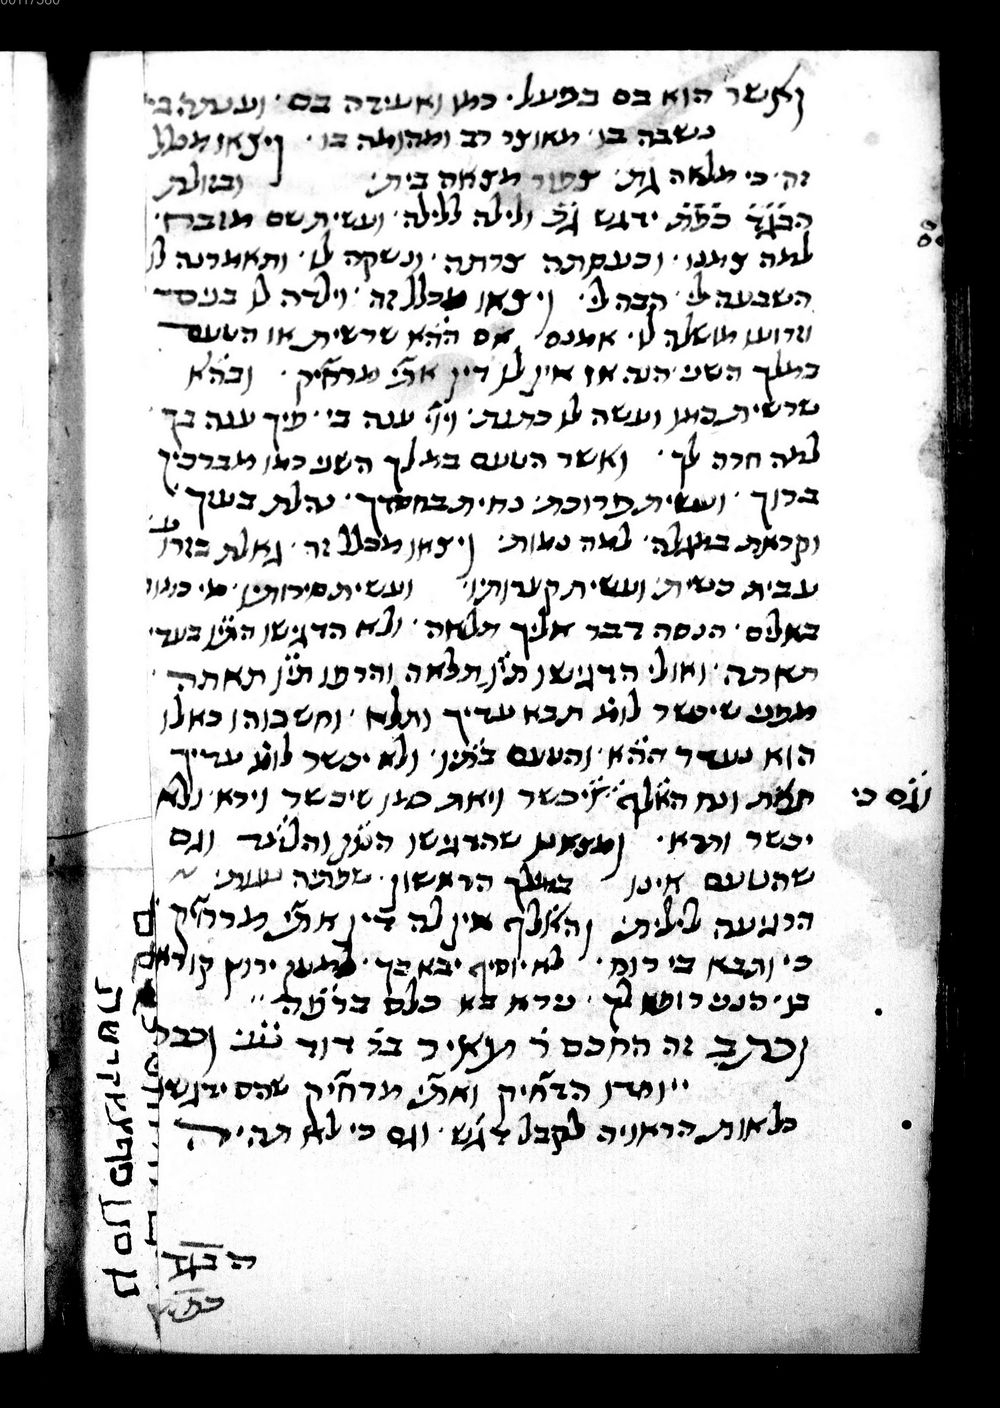 ואשר הוא בם בפעל כמו ואעידה בם וענתה בי
נשבה בו מאוצר רב ומהומה בו ויצאו מכלל
זה כי מלאה גת צפור מצאה בית ובזולת
הבגד כפת ידגש גכ ולילה ללילה ועשית שם מזבח
למה צמנו וכעסתה צרתה ונשקה לו ותאמרנה לו
השבעה לי הבה לי ויצאו מכלל זה וילדה לו בניסד
וזרועו מושלה לו אמנם אם ההא שרשית או הטעם
במלך השני הנה אז אין לו דין אתי מרחיק ובהא
שרשית כמו ועשה לו כתנת ויי ענה בי פיך ענה בך
למה חרה לך ואשר הטעם במלך השני כמו מברכיך
ברוך ועשית פרוכת נחית בחסדך נהלת בעזך
וקראת במגלה למה נמות ויצאו מכלל זה גאלת בזרוע
עבית כשית ועשית קערותיו ועשית סירותיו מי כמוך
באלים הנסה דבר אליך תלאה ולא הדגישו התיו בעדי
תאתה ואולי הדגישו תיו תלאה והרפו תיו תאתה
מפני שיכשר לומ תבא עדיך ותלא וחשבוהו כאלו
הוא נעדר ההא והטעם בתיו ולא יכשר לומ עדיך
תאת ונח האלף יכשר ויאת כמו שיכשר וירא ולא
וגם כי
יכשר ותרא ומצאנו שהדגישו התיו והלמד וגם
שהטעם אינו במלך הראשון שפתיה
הרגיעה לילית והאלף אין לה דין אתי מרחיק
כי ותבא בי רוח לא יוסיף יבא בך למען ירוץ קורא
בו הנני רופא לך נירא בא כלם ברפה
וכתב זה החכם ר מאיר בר דוד וכבר
יומרו הדחיק ואתי מרחיק שהם ידגשו
כל אות הראויה לקבל דגש וגם כי לא תהיה
הבגד
כפת